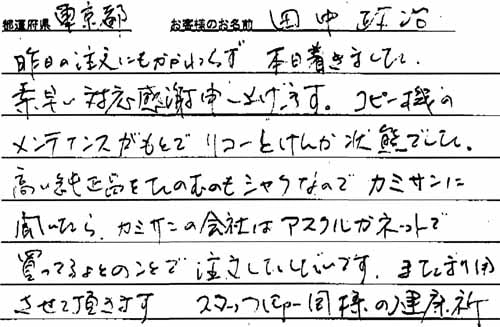 都道府県 東京都 お客様のお名前 田中 政治
昨日の注文にもかかわらず 本日着きました。
素早い対応感謝申し上げます。コピー機の
メンテナンスがもとでリコーとけんか状態でした。
高い純正品をたのむのもシャクなので カミサンに
聞いたら、カミサンの会社はアスクルかネットで
買ってるよとのことで 注文したしだいです。また利用
させて頂きます スタッフ一同様の健康祈